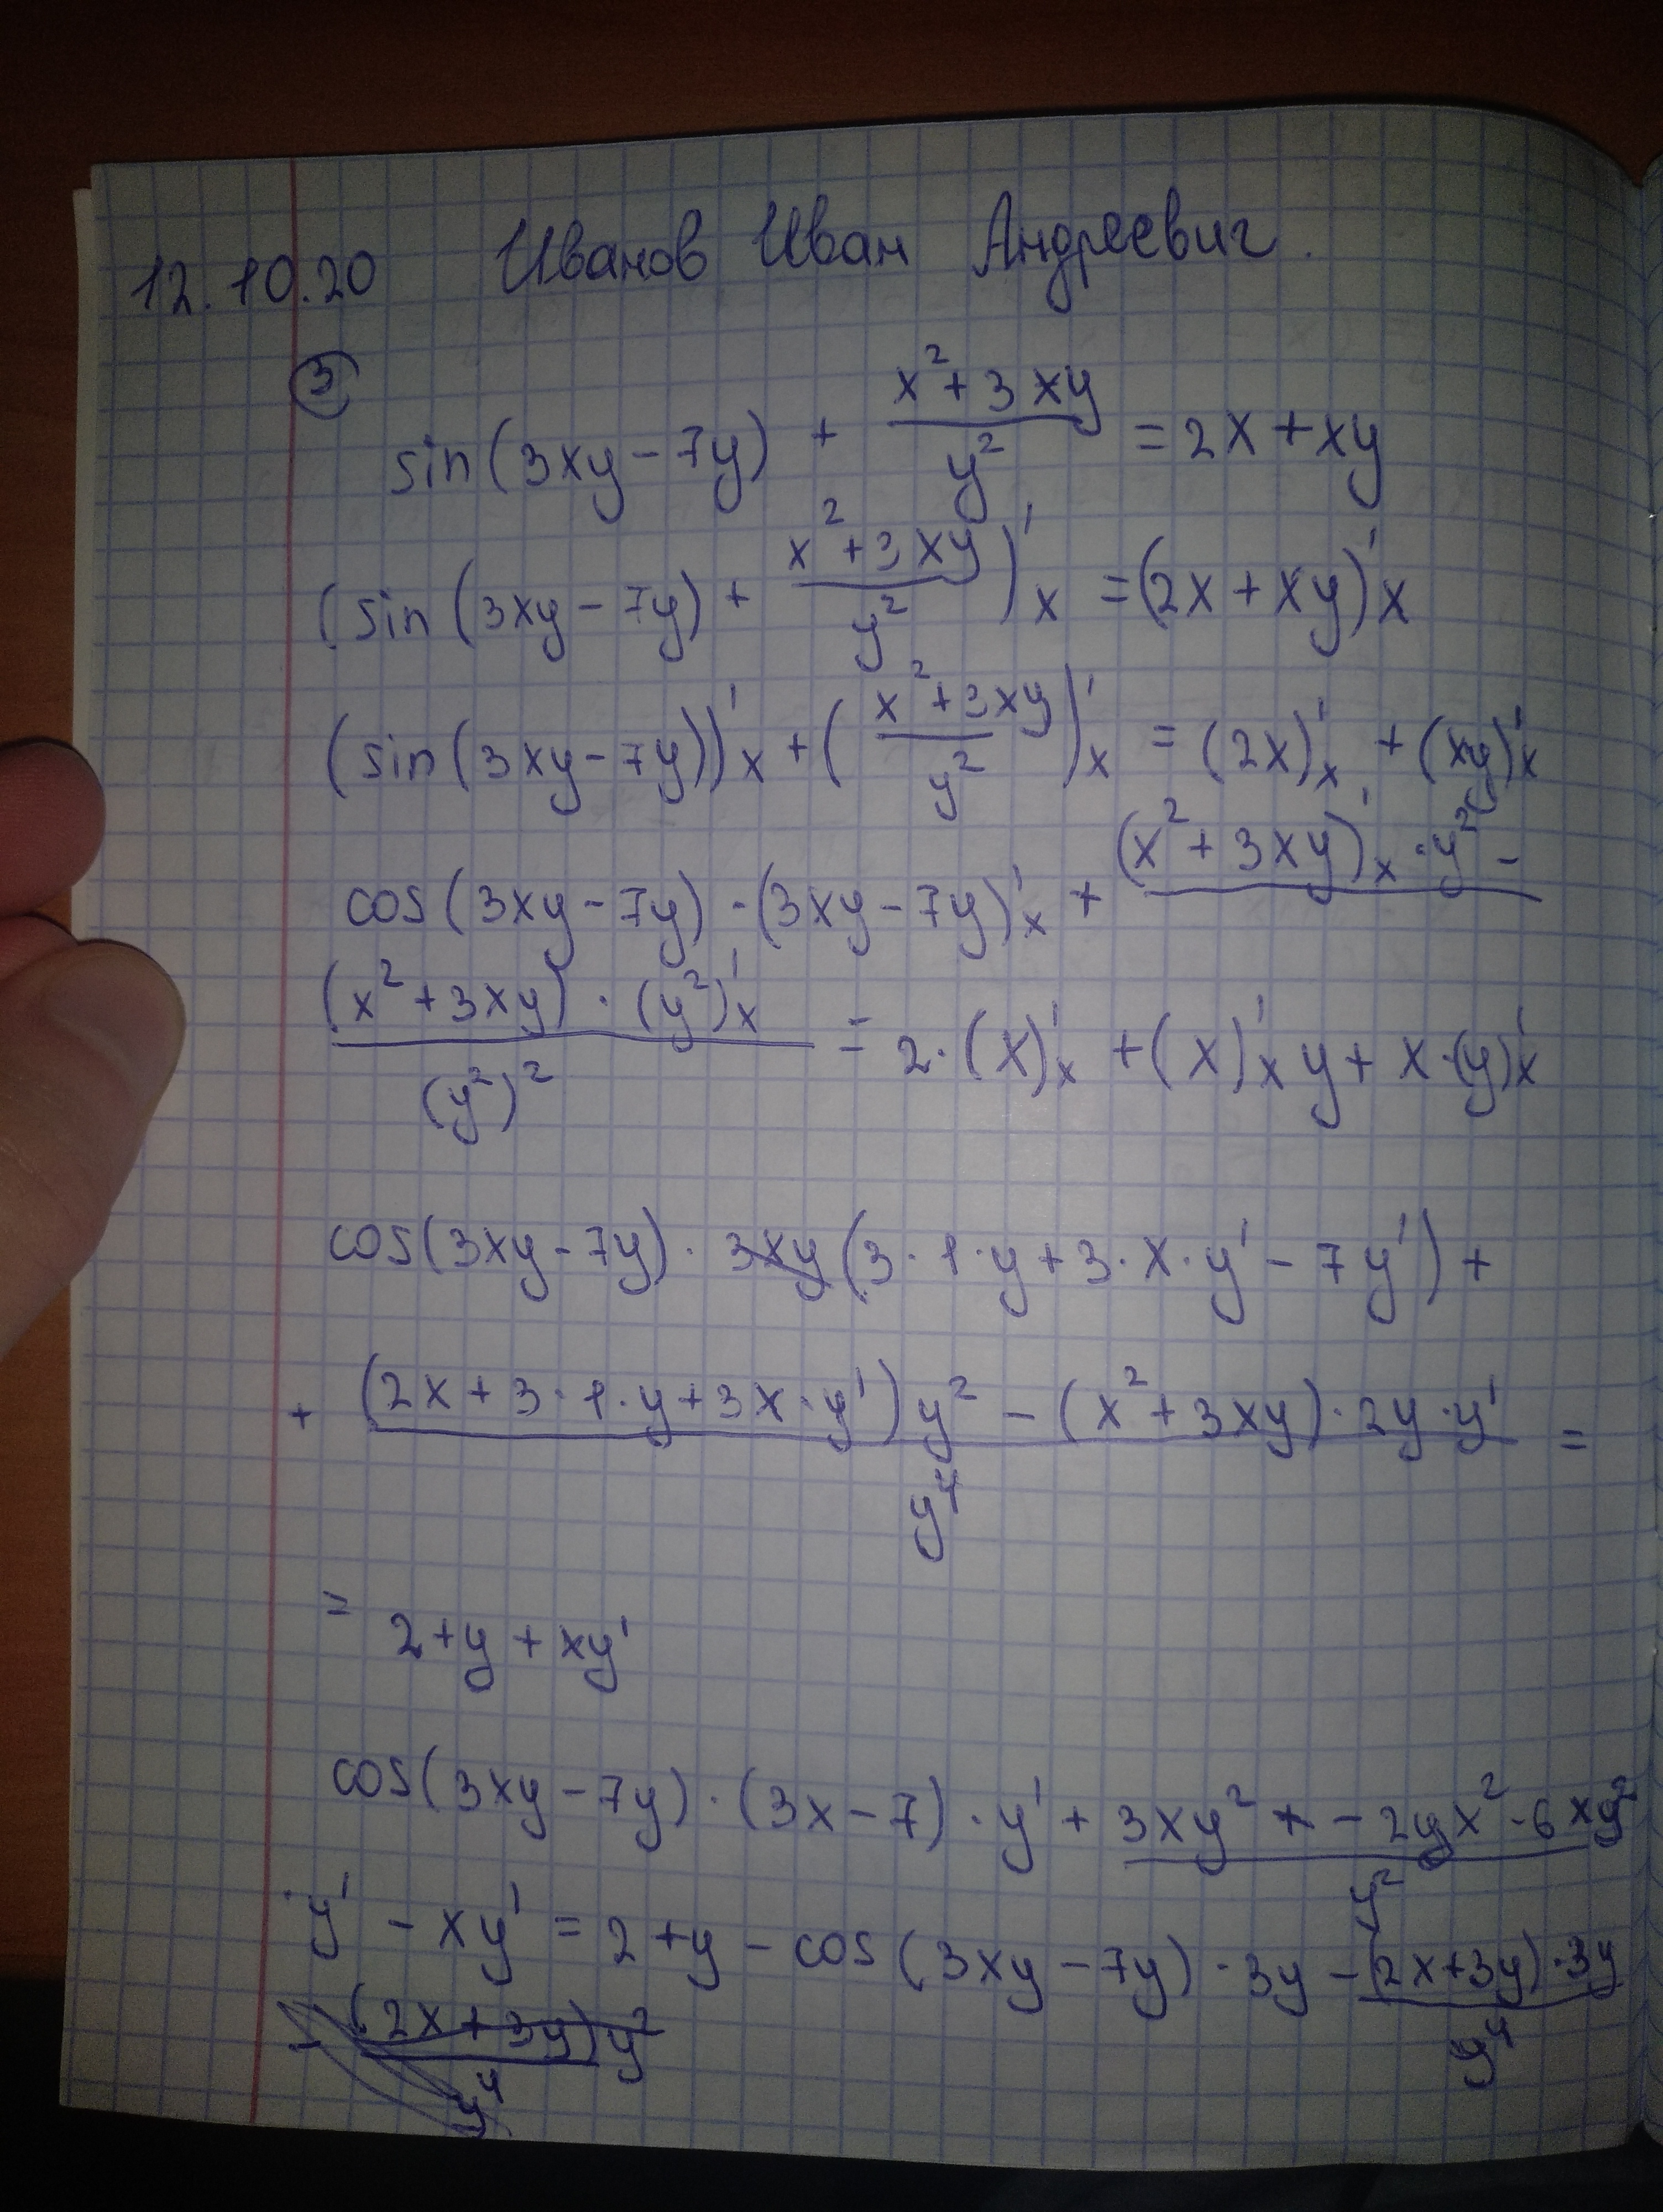 12.10.20 Иванов Иван Андреевич.
③
sin(3xy - 7y) + (x² + 3xy)/y² = 2x + xy
(sin(3xy - 7y) + (x² + 3xy)/y²)'x = (2x + xy)'x
(sin(3xy - 7y))'x + ((x² + 3xy)/y²)'x = (2x)'x + (xy)'x
cos(3xy - 7y) · (3xy - 7y)'x + (x² + 3xy)'x · y² -
(x² + 3xy) · (y²)'x / (y²)² = 2·(x)'x + (x)'x y + x·(y)'x
cos(3xy - 7y) · 3xy (3·1·y + 3·x·y' - 7y') +
+ ((2x + 3·1·y + 3x·y') y² - (x² + 3xy)·2y·y')/y⁴ =
= 2 + y + xy'
cos(3xy - 7y) · (3x - 7) · y' + (3xy² + - 2yx² - 6xy²)/y²
·y' - xy' = 2 + y - cos(3xy - 7y) · 3y - (2x + 3y)·3y/y⁴
- (2x + 3y)y²/y⁴